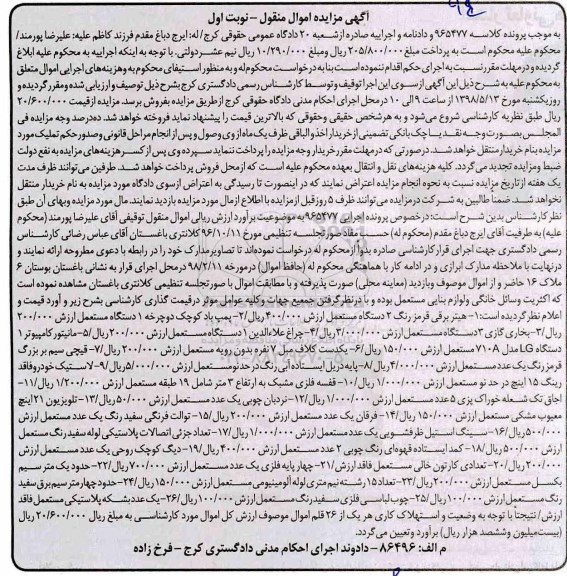 آگهی مزایده اموال منقول - نوبت اول
به موجب پرونده کلاسه ۹۶۵۴۷۷ و دادنامه و اجرائیه صادره از شعبه ۲۰ دادگاه عمومی حقوقی کرج / له: ایرج دباغ مقدم فرزند کاظم علیه: علیرضا پورمند /
محکوم علیه محکوم است به پرداخت مبلغ ۲۰۵/۸۰۰/۰۰۰ ریال و مبلغ ۱۰/۲۹۰/۰۰۰ ریال نیم عشر دولتی. با توجه به اینکه اجرائیه به محکوم علیه ابلاغ
گردیده و در مهلت مقرر نسبت به اجرای حکم اقدام ننموده است بنا به درخواست محکوم له و به منظور استیفای محکوم به و هزینه های اجرایی اموال متعلق
به محکوم علیه به شرح ذیل این آگهی از سوی این اجرا توقیف و توسط کارشناس رسمی دادگستری کرج بشرح ذیل توصیف و ارزیابی شده و مقرر گردیده و
روز یکشنبه مورخ ۱۳۹۸/۵/۱۳ از ساعت ۹ الی ۱۰ در محل اجرای احکام مدنی دادگاه حقوقی کرج از طریق مزایده بفروش برسد. مزایده از قیمت ۲۰/۶۰۰/۰۰۰
ریال طبق نظریه کارشناسی شروع می شود و به هر شخص حقیقی و حقوقی که بالاترین قیمت را پیشنهاد نماید فروخته خواهد شد. ده درصد وجه مزایده فی
المجلس بصورت وجه نقد یا چک بانکی تضمینی از خریدار اخذ و الباقی ظرف یک ماه از وی وصول و پس از انجام مراحل قانونی و صدور حکم تملیک مورد
مزایده بنام خریدار منتقل خواهد شد. در صورتی که در مهلت مقرر خریدار وجه مزایده را پرداخت ننماید سپرده وی پس از کسر هزینه های مزایده به نفع دولت
ضبط و مزایده تجدید می گردد. کلیه هزینه های نقل و انتقال بعهده محکوم علیه است که از محل فروش پرداخت خواهد شد. طرفین می توانند ظرف مدت
یک هفته از تاریخ مزایده نسبت به نحوه انجام مزایده اعتراض نمایند که در اینصورت تا رسیدگی به اعتراض از سوی دادگاه مورد مزایده به نام خریدار منتقل
نخواهد شد. ضمناً طالبین به شرکت در مزایده می توانند ظرف ۵ روز قبل از مزایده با اطلاع از مال مورد مزایده بازدید نمایند. مال مورد مزایده و بهای آن طبق
نظر کارشناس بدین شرح است: در خصوص پرونده اجرای ۹۶۵۴۷۷ به موضوعیت برآورد ارزش ریالی اموال منقول توقیفی آقای علیرضا پورمند (محکوم
علیه) به طرفیت آقای ایرج دباغ مقدم (محکوم له) حسب مفاد صورتجلسه تنظیمی مورخ ۹۶/۱۰/۱۱ کلانتری باغستان آقای عباس رضائی کارشناس
رسمی دادگستری جهت اجرای قرار کارشناسی صادره بدواً از محکوم له درخواست نموده اند تا تصاویر مدارک خود را در رابطه با دعوی مطروحه ارائه نمایند و
در نهایت با ملاحظه مدارک ابرازی و در ادامه کار با هماهنگی محکوم له (حافظ اموال) در مورخه ۹۸/۲/۱۱ در محل اجرای قرار به نشانی باغستان بوستان ۶
پلاک ۱۶ حاضر و از اموال موصوف بازدید (معاینه محلی) صورت پذیرفته و با مطابقت اموال با صورتجلسه تنظیمی کلانتری باغستان مشاهده نموده است
که اکثریت وسائل خانگی و لوازم بنایی مستعمل بوده و با در نظر گرفتن جمیع جهات و کلیه عوامل موثر در قیمت گذاری کارشناسی بشرح زیر و آورد قیمت و
اعلام نظر گردیده است: ۱- هیتر برقی قرمز رنگ ۲ دستگاه مستعمل ارزش ۴۰۰/۰۰۰ ریال / ۲- پمپ باد کوچک دوچرخه ۱ دستگاه مستعمل ارزش ۲۰۰/۰۰۰
ریال / ۳- بخاری گازی ۳ دستگاه مستعمل ارزش ۳/۰۰۰/۰۰۰ ریال / ۴- چراغ علاءالدین ۱ دستگاه مستعمل ارزش ۲۰۰/۰۰۰ ریال / ۵- مانیتور کامپیوتر ۱
دستگاه LG مدل ۷۱۰A مستعمل ارزش ۱۵۰/۰۰۰ ریال / ۶- یکدست کلاف مبل ۷ نفره بدون رویه مستعمل ارزش ۲۰۰/۰۰۰ ریال / ۷- قیچی سیم بر بزرگ
قرمز رنگ یک عدد مستعمل ارزش ۴/۰۰۰/۰۰۰ ریال / ۸- پایه دریل ایستاده آبی رنگ در حد نو مستعمل ارزش ۵/۰۰۰/۰۰۰ ریال / ۹- لاستیک خودرو فاقد
رینگ ۱۵ اینچ در حد نو مستعمل ارزش ۱/۰۰۰/۰۰۰ ریال / ۱۰- قفسه فلزی مشبک به ارتفاع ۳ متر شامل ۱۹ طبقه مستعمل ارزش ۱/۲۰۰/۰۰۰ ریال / ۱۱-
اجاق تک شعله خوراک پزی ۵ عدد مستعمل ارزش ۱/۰۰۰/۰۰۰ ریال / ۱۲- نردبان چوبی یک عدد مستعمل ارزش ۵۰/۰۰۰ ریال / ۱۳- تلویزیون ۲۱ اینچ
معیوب مشکی مستعمل ارزش ۱۵۰/۰۰۰ ریال / ۱۴- فرقان یک عدد مستعمل ارزش ۲۰۰/۰۰۰ ریال / ۱۵- توالت فرنگی سفید رنگ یک عدد مستعمل ارزش
۵۰۰/۰۰۰ ریال / ۱۶- سینک استیل ظرفشویی یک عدد مستعمل ارزش ۱/۰۰۰/۰۰۰ ریال / ۱۷- تعداد جزئی اتصالات پلاستیکی لوله سفید رنگ مستعمل
ارزش ۵۰/۰۰۰ ریال / ۱۸- کمد ایستاده قهوه ای رنگ چوبی ۲ عدد مستعمل ارزش ۴۰۰/۰۰۰ ریال / ۱۹- دیگ کوچک روحی یک عدد مستعمل ارزش
۲۰۰/۰۰۰ ریال / ۲۰- تعدادی کارتون خالی مستعمل فاقد ارزش / ۲۱- چهارپایه فلزی یک عدد مستعمل ارزش ۷۰۰/۰۰۰ ریال / ۲۲- حدود یک متر سیم
بکسل مستعمل ارزش ۲۰۰/۰۰۰ ریال / ۲۳- تعداد ۱۵ رشته نیم متری لوله آلومینیومی مستعمل ارزش ۱۵۰/۰۰۰ ریال / ۲۴- حدود چهار متر سیم برق سفید
رنگ مستعمل ارزش ۱۰۰/۰۰۰ ریال / ۲۵- چوب لباسی فلزی سفید رنگ مستعمل ارزش ۱۰۰/۰۰۰ ریال / ۲۶- یک عدد بشکه پلاستیکی مستعمل فاقد
ارزش / نتیجتاً با توجه به وضعیت و استهلاک کاری هر یک از ۲۶ قلم اموال موصوف ارزش کل اموال مورد کارشناسی به مبلغ ریال ۲۰/۶۰۰/۰۰۰ ریال
(بیست میلیون و ششصد هزار ریال) برآورد و تعیین می گردد.
م الف: ۸۶۴۹۶ - دادورز اجرای احکام مدنی دادگستری کرج - فرخ زاده